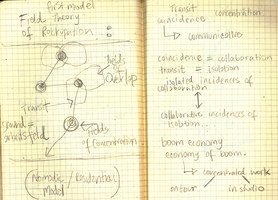 first model
Field Theory
of Rockupation
:
fields
of
Overlap
Transit
ground =
fields
of Concentration
Nomadic / Residential
Model
Transit
concentration
coincidence
communicative
coincidence = collaboration
transit = isolation
isolated incidences of
collaboration
collaborative incidences of
isolation.
boom economy
economy of boom.
concentrated work
on tour
in studio